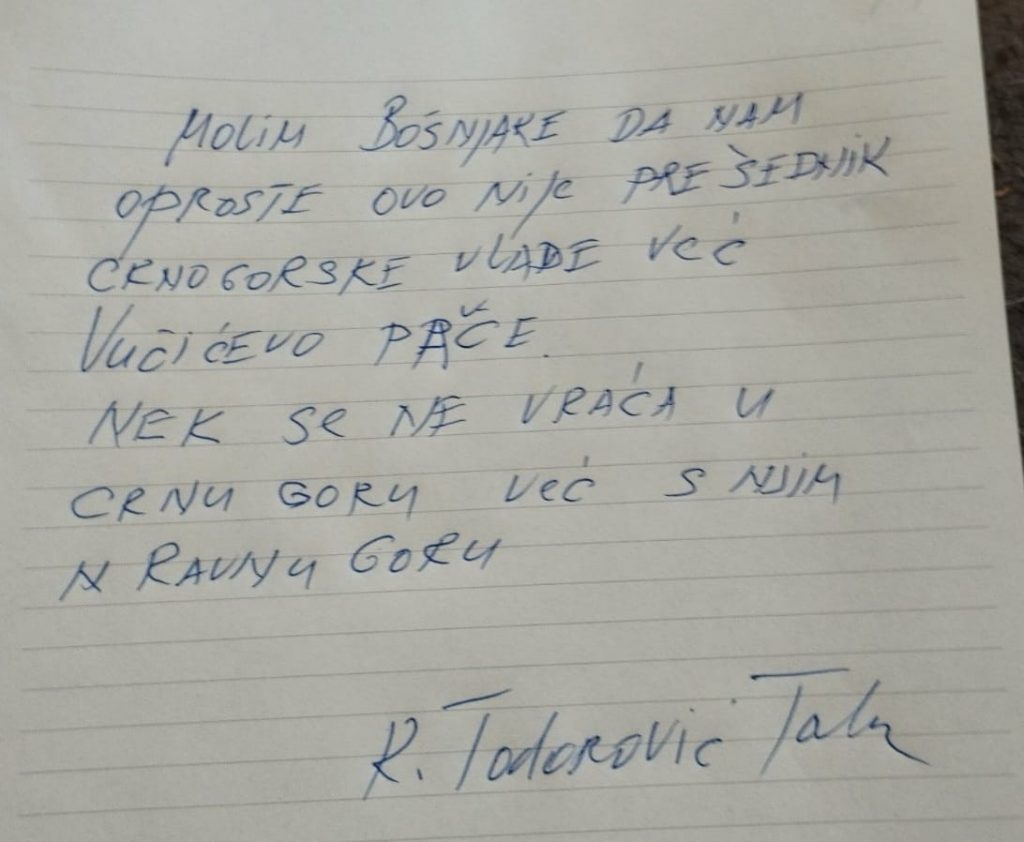 MOLIM BOŠNJAKE DA NAM
OPROSTE OVO NIJE PREŠEDNIK
CRNOGORSKE VLADE VEĆ
VUČIĆEVO PAČE.
NEK SE NE VRAĆA U
CRNU GORU VEĆ S NJIM
N RAVNU GORU
R. Todorović